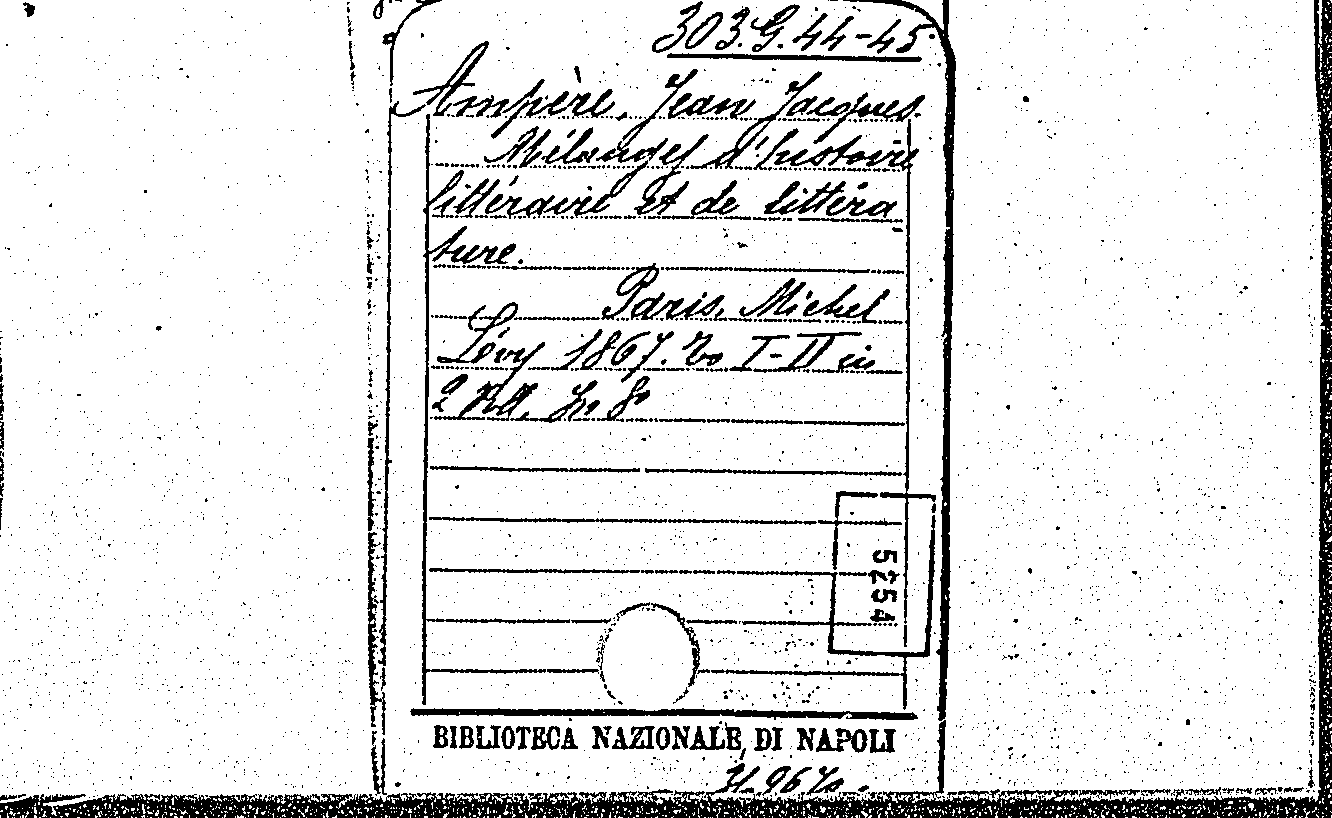 303.G.44-45.
Ampère, Jean Jacques.
Mélanges d'histoire
littéraire et de littéra-
ture.
Paris, Michel
Lévy 1867. Vo I-II in
2 Voll. In 8°
5254
BIBLIOTECA NAZIONALE DI NAPOLI